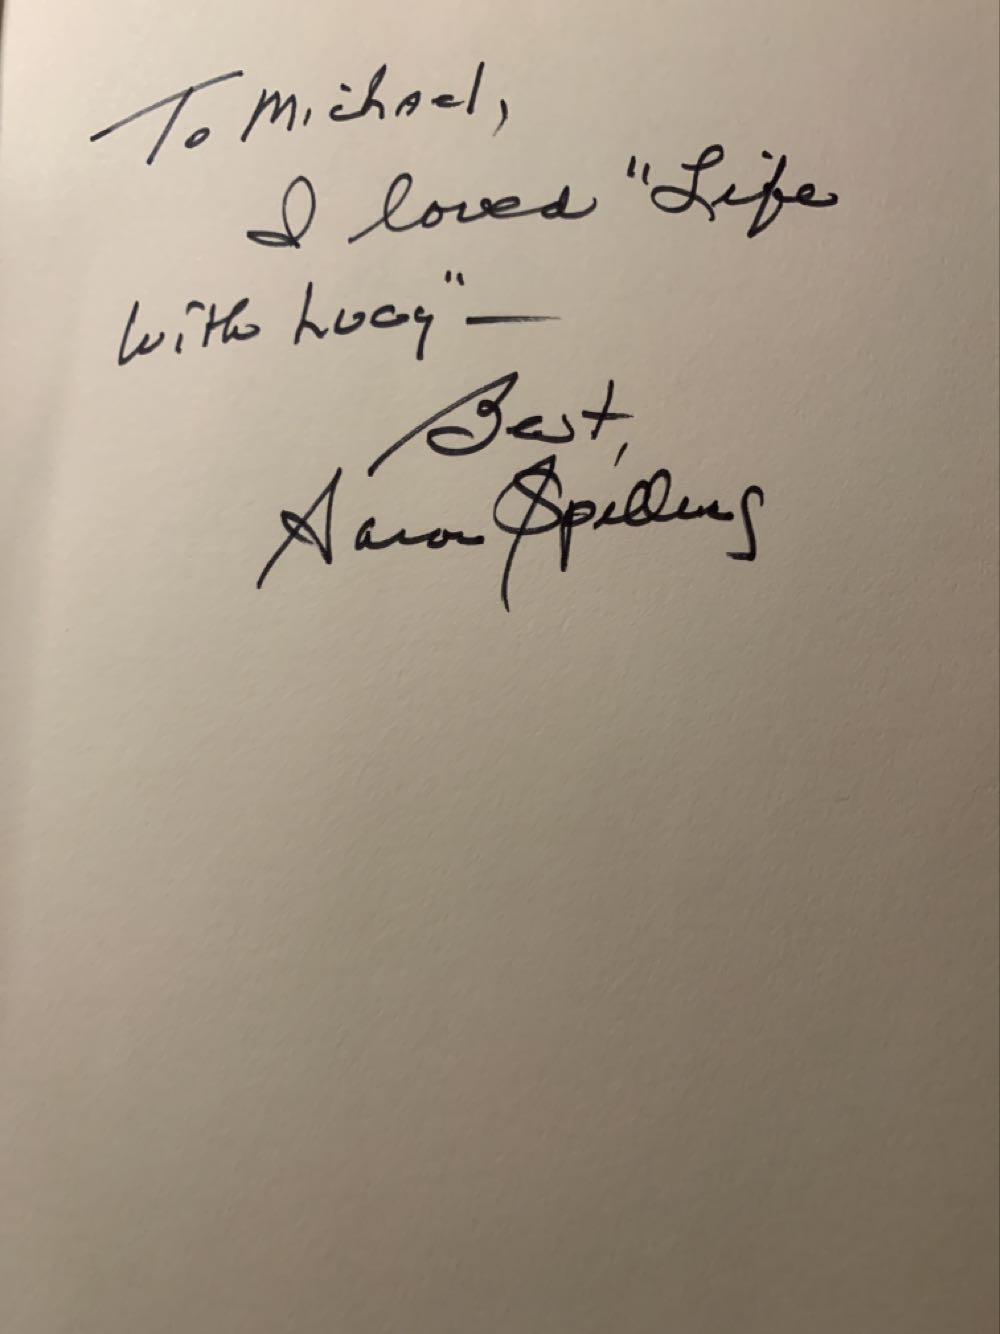 To Michael,
I loved "Life
With Lucy" —
Best,
Aaron Spelling